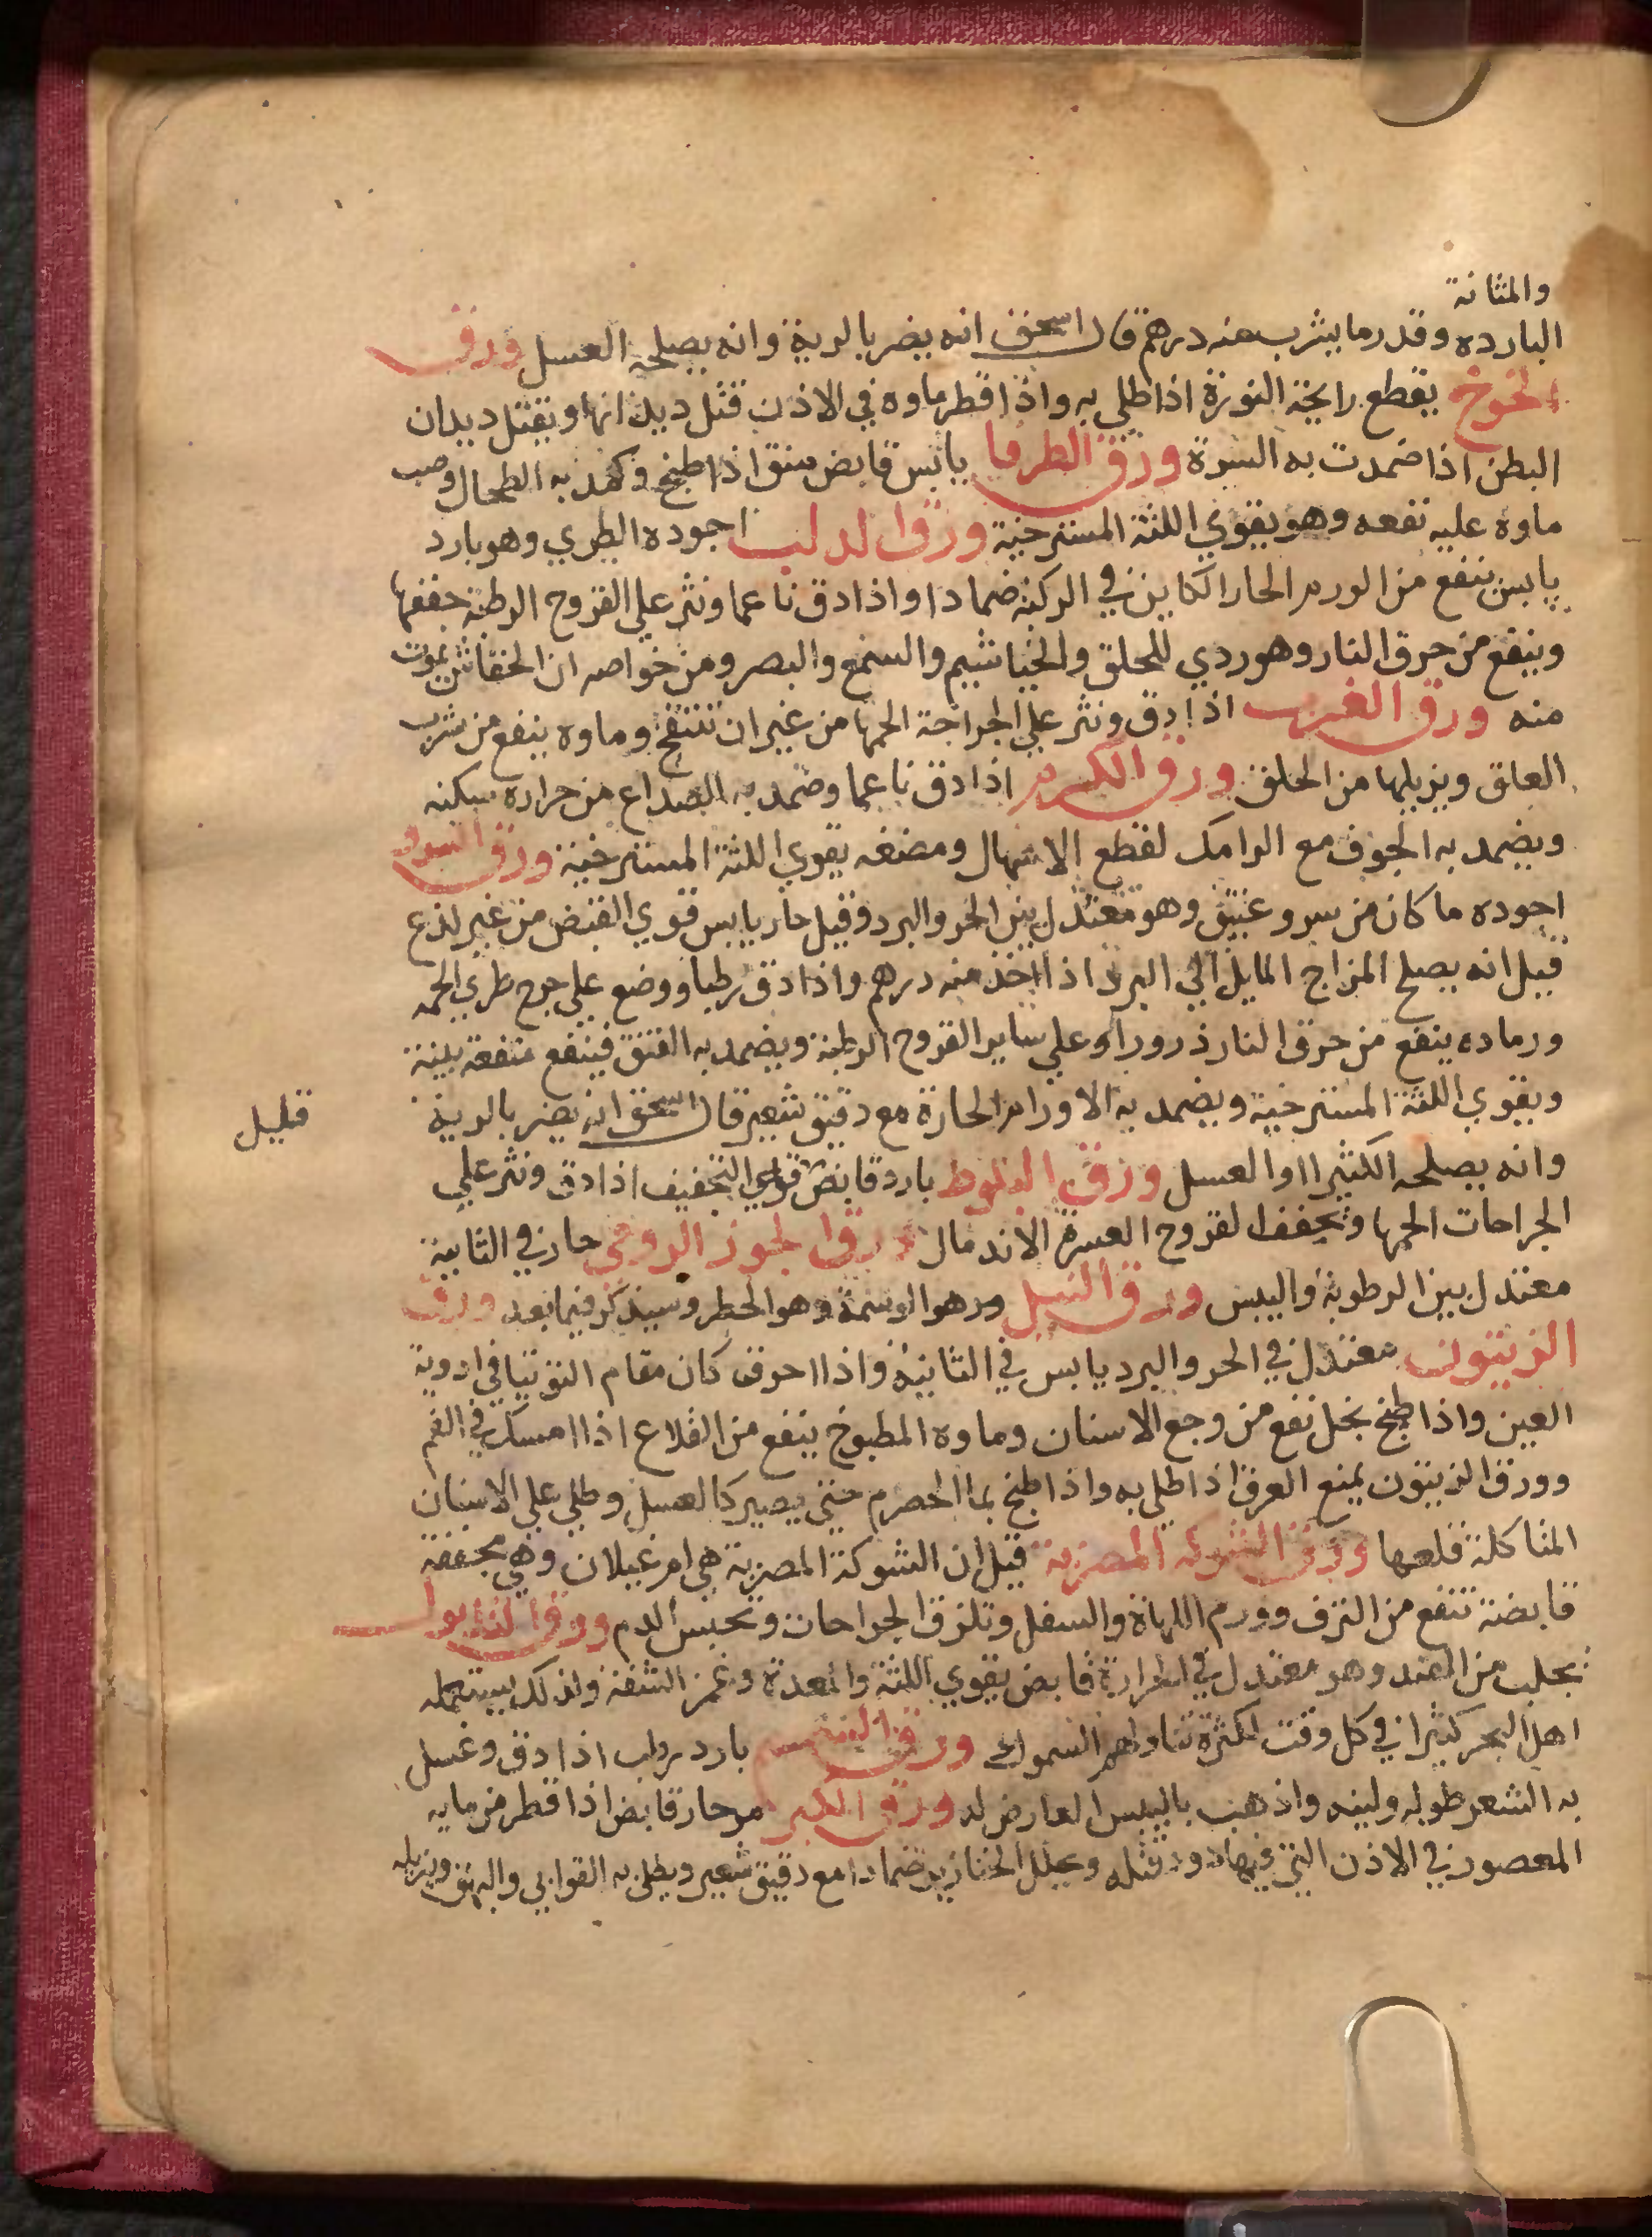 والمثانة
البارده وقدر ما يشرب منه درهم قال اسحق انه يضر بالرية وانه يصلحه العسل ورق
الخوخ يقطع رايحة النورة اذا طلي به واذا قطر ماوه في الاذن قتل ديدانها ويقتل ديدان
البطن اذا ضمدت به السرة ورق الطرفا يابس قابض منق اذا طبخ وكمد به الطحال وصب
ماوه عليه نفعه وهو يقوي اللثة المسترخية ورق الدلب اجوده الطري وهو بارد
يابس ينفع من الورم الحار الكاين في الركبة ضمادا واذا دق ناعما ونثر علي القروح الرطبة جففها
وينفع من حرق النار وهو ردي للحلق والخياشيم والسمع والبصر ومن خواصه ان الخفاش يموت
منه ورق الغرب اذا دق ونثر علي الجراحة الحمها من غير ان تتقيح وماوه ينفع من شرب
العلق ويزيلها من الحلق ورق الكرم اذا دق ناعما وضمد به الصداع من حرارة سكنه
ويضمد به الجوف مع الرامك لقطع الاسهال ومضغه يقوي اللثة المسترخية ورق السرو
اجوده ما كان من سرو عتيق وهو معتدل بين الحر والبرد وقيل حار يابس قوي القبض من غير لذع
قيل انه يصلح المزاج المايل الي البرد اذا اخذ منه درهم واذا دق رطبا ووضع علي جرح طري الحمه
ورماده ينفع من حرق النار ذرورا وعلي ساير القروح الرطبة ويضمد به الفتق فينفع منفعة بينة
ويقوي اللثة المسترخية ويضمد به الاورام الحارة مع دقيق شعير قال اسحق انه يضر بالرية
قليل
وانه يصلحه الكثيرا او العسل ورق البلوط بارد قابض قوي التجفيف اذا دق ونثر علي
الجراحات الحمها ويجفف القروح العسرة الاندمال ورق الجوز الرومي حار في الثانية
معتدل بين الرطوبة واليبس ورق النيل هو الوسمة وهو الخطر وسيذكر فيما بعد ورق
الزيتون معتدل في الحر والبرد يابس في الثانية واذا احرق كان مقام التوتيا في ادوية
العين واذا طبخ بخل نفع من وجع الاسنان وماوه المطبوخ ينفع من القلاع اذا امسك في الفم
وورق الزيتون يمنع العرق اذا طلي به واذا طبخ بما الحصرم حتي يصير كالعسل وطلي علي الاسنان
المتاكلة قلعها ورق الشوكة المصرية قيل ان الشوكة المصرية هي ام غيلان وهي مجففة
قابضة تنفع من النزف وورم اللهاة والسفل وتلزق الجراحات وتحبس الدم ورق التانبول
يجلب من الهند وهو معتدل في الحرارة قابض يقوي اللثة والمعدة الشفة ولذلك يستعمله
اهل البحر كثيرا في كل وقت لكثرة تناولهم السموك ورق بارد رطب اذا دق وغسل
به الشعر طوله ولينه واذهب باليبس العارض له ورق الكبر مر حار قابض اذا قطر من مايه
المعصور في الاذن التي فيها دود قتله ويحلل الخنازير ضمادا مع دقيق شعير ويطلي به القوابي والبهق ويزيله